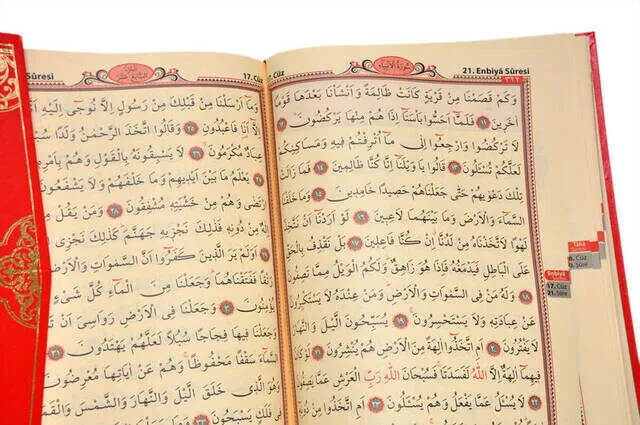 سُورَةُ الْاَنْبِيَاءِ
21. Enbiyâ Sûresi
وَكَمْ قَصَمْنَا مِنْ قَرْيَةٍ كَانَتْ ظَالِمَةً وَاَنْشَأْنَا بَعْدَهَا قَوْمًا
اٰخَرِينَ ١١ فَلَمَّٓا اَحَسُّوا بَأْسَنَٓا اِذَا هُمْ مِنْهَا يَرْكُضُونَ ١٢
لَا تَرْكُضُوا وَارْجِعُٓوا اِلٰى مَٓا اُتْرِفْتُمْ فِيهِ وَمَسَاكِنِكُمْ
لَعَلَّكُمْ تُسْـَٔلُونَ ١٣ قَالُوا يَا وَيْلَنَٓا اِنَّا كُنَّا ظَالِمِينَ ١٤
تِلْكَ دَعْوٰيهُمْ حَتّٰى جَعَلْنَاهُمْ حَصِيدًا خَامِدِينَ ١٥ وَمَا خَلَقْنَا
السَّمَٓاءَ وَالْاَرْضَ وَمَا بَيْنَهُمَا لَاعِبِينَ ١٦ لَوْ اَرَدْنَٓا اَنْ نَتَّخِذَ
لَهْوًا لَاتَّخَذْنَاهُ مِنْ لَدُنَّا اِنْ كُنَّا فَاعِلِينَ ١٧ بَلْ نَقْذِفُ بِالْحَقِّ
عَلَى الْبَاطِلِ فَيَدْمَغُهُ فَاِذَا هُوَ زَاهِقٌ وَلَكُمُ الْوَيْلُ مِمَّا تَصِفُونَ ١٨
وَلَهُ مَنْ فِي السَّمٰوَاتِ وَالْاَرْضِ وَمَنْ عِنْدَهُ لَا يَسْتَكْبِرُونَ
عَنْ عِبَادَتِهِ وَلَا يَسْتَحْسِرُونَ ١٩ يُسَبِّحُونَ الَّيْلَ وَالنَّهَارَ
لَا يَفْتُرُونَ ٢٠ اَمِ اتَّخَذُٓوا اٰلِهَةً مِنَ الْاَرْضِ هُمْ يُنْشِرُونَ ٢١
فِيهِمَٓا اٰلِهَةٌ اِلَّا اللّٰهُ لَفَسَدَتَا فَسُبْحَانَ اللّٰهِ رَبِّ الْعَرْشِ عَمَّا يَصِفُونَ
لَا يُسْـَٔلُ عَمَّا يَفْعَلُ وَهُمْ يُسْـَٔلُونَ ٢٣ اَمِ اتَّخَذُوا مِنْ دُونِهِ
Tâhâ
Enbiya
17. Cüz
21. Sûre
17. Cüz
Sûresi
وَمَٓا اَرْسَلْنَا مِنْ قَبْلِكَ مِنْ رَسُولٍ اِلَّا نُوحِٓي اِلَيْهِ
اِلَّٓا اَنَا فَاعْبُدُونِ ٢٥ وَقَالُوا اتَّخَذَ الرَّحْمٰنُ وَلَدًا
عِبَادٌ مُكْرَمُونَ ٢٦ لَا يَسْبِقُونَهُ بِالْقَوْلِ وَهُمْ بِاَمْرِهِ
يَعْلَمُ مَا بَيْنَ اَيْدِيهِمْ وَمَا خَلْفَهُمْ وَلَا يَشْفَعُونَ
ارْتَضٰى وَهُمْ مِنْ خَشْيَتِهِ مُشْفِقُونَ ٢٨ وَمَنْ يَقُلْ
مِنْ دُونِهِ فَذٰلِكَ نَجْزِيهِ جَهَنَّمَ كَذٰلِكَ نَجْزِي
اَوَلَمْ يَرَ الَّذِينَ كَفَرُٓوا اَنَّ السَّمٰوَاتِ وَالْاَرْضَ
رَتْقًا فَفَتَقْنَاهُمَا وَجَعَلْنَا مِنَ الْمَٓاءِ كُلَّ شَيْءٍ
يُؤْمِنُونَ ٣٠ وَجَعَلْنَا فِي الْاَرْضِ رَوَاسِيَ اَنْ
وَجَعَلْنَا فِيهَا فِجَاجًا سُبُلًا لَعَلَّهُمْ يَهْتَدُونَ ٣١
السَّمَٓاءَ سَقْفًا مَحْفُوظًا وَهُمْ عَنْ اٰيَاتِهَا مُعْرِضُونَ
وَهُوَ الَّذِي خَلَقَ الَّيْلَ وَالنَّهَارَ وَالشَّمْسَ وَالْقَمَرَ
فِي فَلَكٍ يَسْبَحُونَ ٣٣